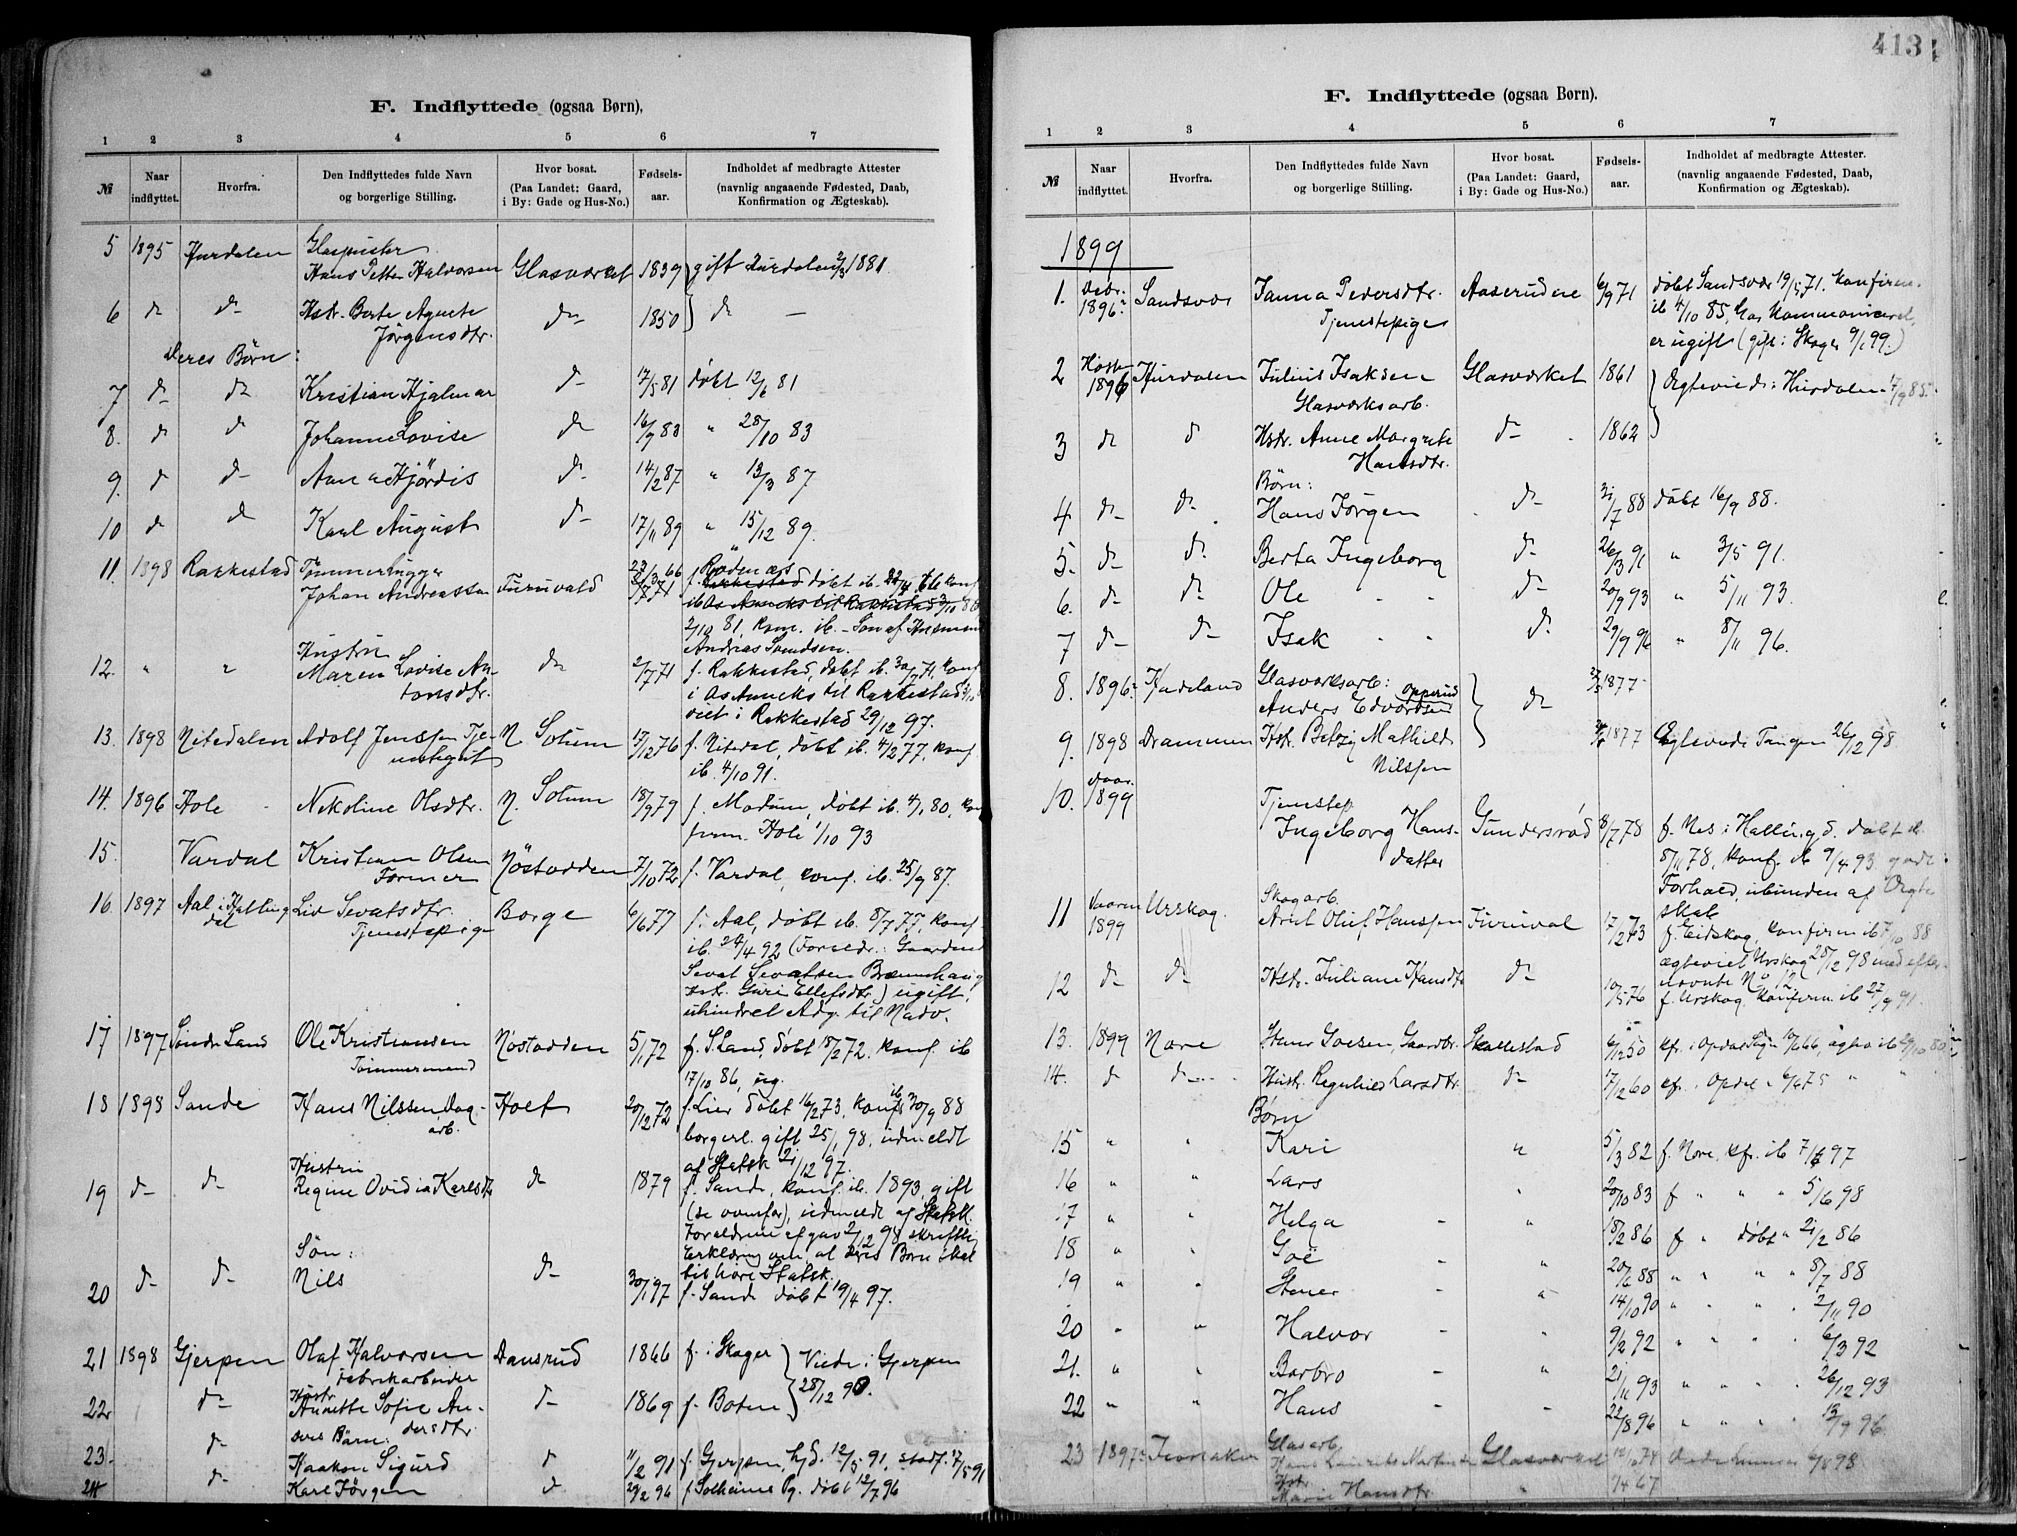 F. Indflyttede (ogsaa Børn),
1 2 3 4 5 6 7
№ Naar indflyttet. Hvorfra. Den Indflyttedes fulde Navn og borgerlige Stilling. Hvor bosat. (Paa Landet: Gaard, i By: Gade og Hus-No.) Fødsels-aar. Indholdet af medbragte Attester (navnlig angaaende Fødested, Daab, Konfirmation og Ægteskab).
5 1895 Hurdalen Glaspuster
Hans Petter Halvorsen Glasværket 1839 gift Hurdalen 1881
6 d d Hstr. Berte Agnete d 1850 d —
Jørgensdtr.
Deres Børn:
7 d d Kristian Hjalmar d 17/5 81 døbt 12/6 81
8. d d Johanne Lovise d 16/9 83 " 28/10 83
9. d d Anna Hjördis d 14/2 87 " 13/3 87
10 d d Karl August d 17/11 89 " 15/12 89.
11. 1898 Rakkestad Tømmerhugger
Johan Andreassen Furuvald 23/3 66 f. Rödenæs døbt ib.
2/10 81, kom. ib. - Søn af Husmand
Andreas
12. " " Hustru
Maren Lovise An- d 2/7 71 f. Rakkestad, døbt ib. 30/7 71, konf
tonsdtr. i Os Anneks til Rakkestad
viet i Rakkestad 29/12 97.
13. 1898 Nitedalen Adolf Jenssen Tje- N. Solum 17/12 76 f. Nitedal, døbt ib. 4/2 77, konf
nestegut ib. 4/10 91.
14. 1896 Hole Nikoline Olsdtr. N. Solum 18/9 79 f. Modum, døbt ib. 4/1 80, kon
firm. Hole 1/10 93
15. Vardal Kristian Olsen Nøstodden 7/10 72 f. Vardal, konf. ib. 25/9 87.
Former
16. 1897 Aal i Halling Liv Sevatsdtr. Borge 6/6 77 f. Aal, døbt ib. 8/7 77, konf
dal Tjenestepige ib. 24/4 92 (Foreldr.: Gaardmd
Sevat Sevatsen Brennhaug
Hstr. Guri Ellefsdtr.) ugift,
uhindret Adg. til Nadv.
17 1897 Søndr. Land Ole Kristiansen Nøstodden 5/1 72 f. S. Land, døbt 18/2 72, konf. ib
Tømmermand 17/10 86, ug.
18 1898 Sande Hans Nilssen Dag- Holt 20/12 72 f. Lier døbt 16/2 73, konf. ib 30/9 88
arb. borgerl. gift 25/1 98, udmeldt
af Statsk 21/12 97.
19 d d Hustru
Regine Ovidia Karlsdtr d 1879 f. Sande, konf. ib. 1893, gift
(se ovenfor), udmeldt af Statsk.
Forældrene afgav 2/12 98 skriftlig
Erklæring om, at deres Børn skal
tilhøre Statsk.
Søn:
20 d d Nils d 30/1 97 f. Sande døbt 19/4 97.
21 1898 Gjerpen Olaf Halvorsen Dansrud 1866 f. i Skoger Viede i Gjerpen
Fabrikarbeider 28/12 90.
22 d Hustr.
Annette Sofie An- d 1869 f. Boten
dersdtr.
deres Børn:
23 d Haakon Sigurd d 11/2 91 f. Gjerpen, hjd. 12/5 91, stadf. 17/5 91
24 d Karl Jörgen d 29/2 96 f. Solheims Pg. døbt 12/7 96
413
F. Indflyttede (ogsaa Børn).
1 2 3 4 5 6 7
№ Naar indflyttet. Hvorfra. Den Indflyttedes fulde Navn og borgerlige Stilling. Hvor bosat. (Paa Landet: Gaard, i By: Gade og Hus-No.) Fødsels-aar. Indholdet af medbragte Attester. (navnlig angaaende Fødested, Daab, Konfirmation og Ægteskab).
1899
1. 1896 Sandsvær Janna Pedersdtr. Aaserudene 6/9 71 døbt Sandsvær 71. Konfirm.
Tjenestepige ib 4/10 85, har kommuniceret,
er ugift (gift i Skoger 9/1 99.)
2 Høsten
1896 Hurdalen Julius Isaksen Glasværket 1861 Ægteviede i Hurdalen 17/9 85.
Glasværksarb.
3 d d Hstr. Anne Margrete d 1862
Hansdtr.
Børn:
4 d d Hans Jörgen d 31/7 88 døbt 16/9 88.
5. d d Berta Ingeborg d 26/3 91 " 3/5 91.
6. d d Ole d 20/9 93 " 5/11 93.
7 d d Isak d 29/9 96 " 8/11 96.
8. 1896 Hadeland Glasværksarb: Opperud
Anders Edvardsen d 1877
9. 1898 Drammen Hstr. Betzy Mathilde 1877 Ægteviede Tangen 26/12 98
Nilssen
10. 1899 Tjenestep
Ingeborg Hans- Gundersröd 8/7 78 f. Nes i Hallingd. døbt ib
datter 8/11 78, konf. ib 9/4 93 gode
Forhold, ubunden af Ægte
skab
11 Vaaren
1899 Urskog. Skogarb.
Arnt Oluf Hanssen Furuval 17/2 73 f. Eidskog, konfirm ib 7/10 88
ægteviet Urskog 28/12 98 med efter-
nævnte No 12.
12 d d Hstr. Juliane Hansdtr d 10/5 76 f. Urskog. Konfirm. ib 27/9 91.
13. 1899 Nore Stener Goesen, Gaardbr. Skallestad 6/12 50 kfr. i Opdal Sogn 66, ægtev ib 80
14. d d Hustr. Regnhild Larsdtr. d 17/12 60 kfr. i Opdal 6/6 75 " "
Børn
15 " " Kari " 5/3 82 f. Nore, kfr. ib 7/6 97
16 " " Lars " 20/10 83 f " " " 5/6 98
17 " " Helga " 18/2 86 f " døbt " 21/2 86
18 " " Goë " 20/6 88 " " " " 8/7 88
19 " " Stener " 14/10 90 " " " " 2/11 90
20 " " Halvor " 9/2 92 " " " " 6/3 92
21. " " Barbro " 21/11 93 " " " " 26/12 93
22 " " Hans " 22/8 96 " " " " 13/9 96
23 1897 Glasarb.
Hans Glasværket
Hstr.
Marie Hansdtr. " 67